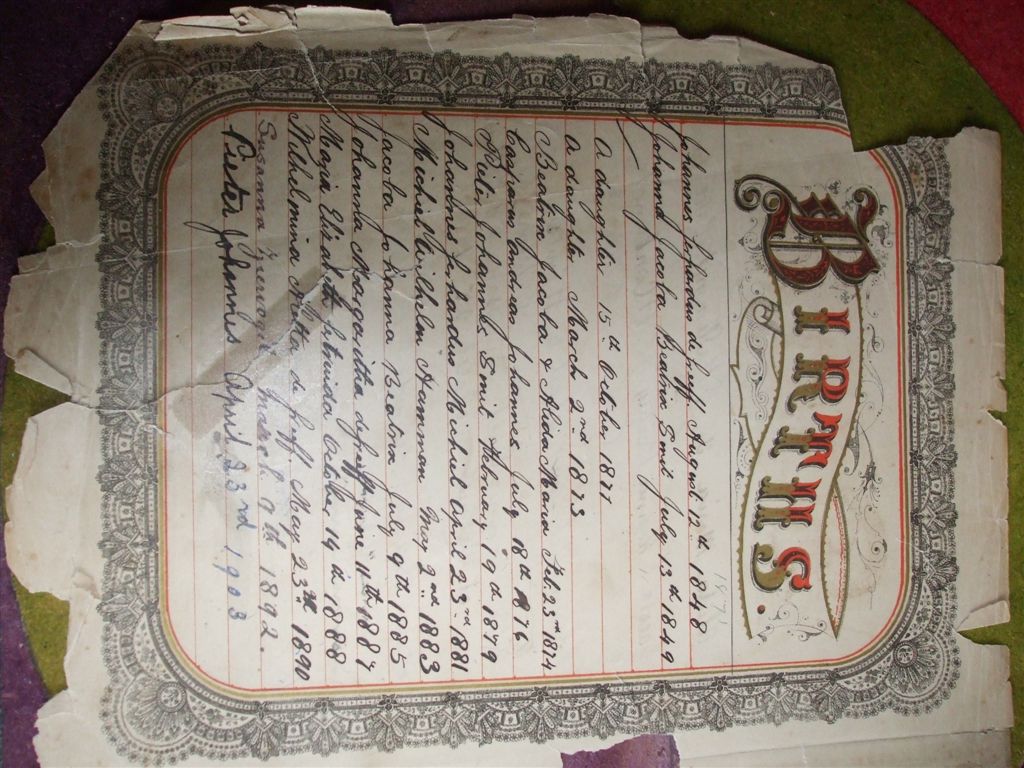 BIRTHS.
1871
Johannes Gerhardus de Greeff August 12th 1848
Johanna Jacoba Beatrix Smit July 13th 1849
A daughter 15th October 1871
A daughter March 2nd 1873
Beatrix Jacoba & Alida Maria Feb. 23rd 1874
Casparus Andreas Johannes July 18th 1876
Pieter Johannes Smit February 19th 1879
Johannes Gerhardus Michiel April 23rd 1881
Michiel Wilhelm Hamman May 2nd 1883
Jacoba Johanna Beatrix July 9th 1885
Johanna Margaritha de Greeff June 11th 1887
Maria Elizabeth Gertruida October 14th 1888
Wilhelmina Aletta de Greeff May 23rd 1890
Susanna March 9th 1892.
Pieter Johannes April 23rd 1903